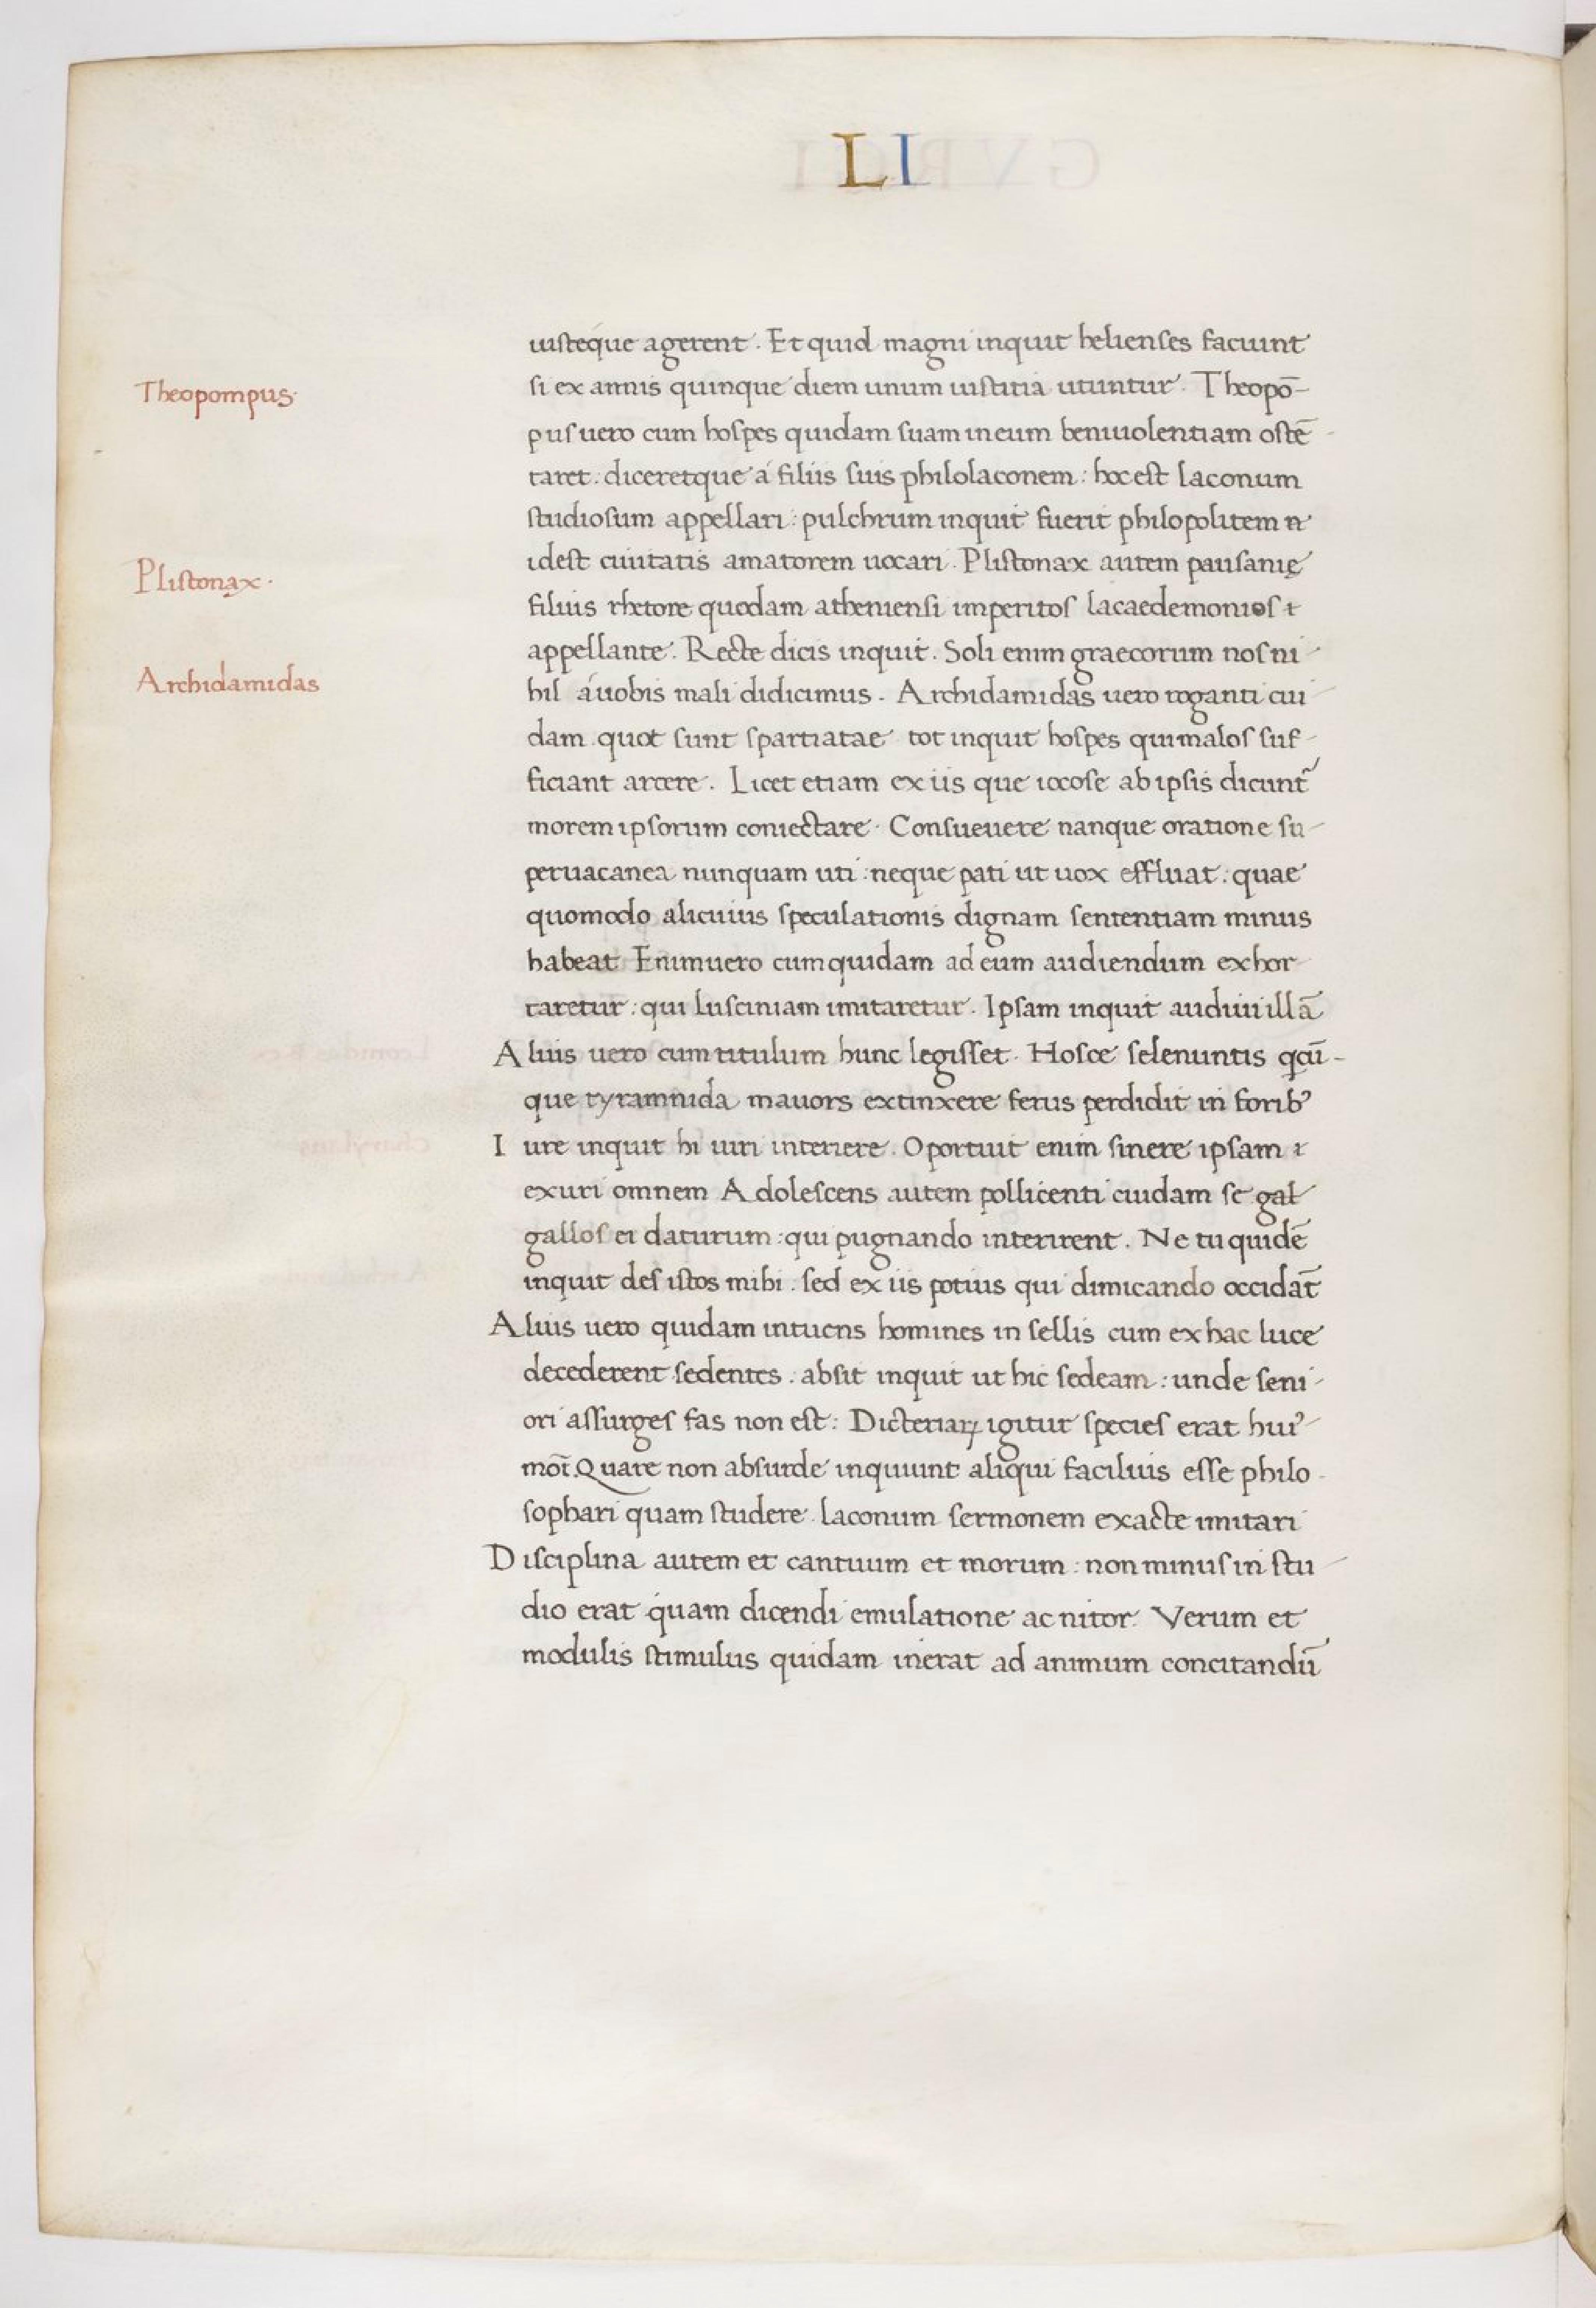 LI
iusteque agerent. Et quid magni inquit helienses faciunt
Theopompus.
si ex annis quinque diem unum iustitia utuntur. Theopō-
pus uero cum hospes quidam suam in eum beniuolentiam ostē-
taret: diceretque á filiis suis philolaconem: hoc est laconum
studiosum appellari: pulchrum inquit fuerit philopolitem
Plistonax.
idest ciuitatis amatorem uocari. Plistonax autem pausanię
filius rhetore quodam atheniensi imperitos lacaedemonios
appellante. Recte dicis inquit. Soli enim graecorum nos ni-
Archidamidas
hil á uobis mali didicimus. Archidamidas uero roganti cui-
dam quot sunt spartiatae tot inquit hospes qui malos suf-
ficiant arcere. Licet etiam ex iis que iocose ab ipsis dicunt̃
morem ipsorum coniectare. Consueuere nanque oratione su-
peruacanea nunquam uti: neque pati ut uox effluat: quae
quomodo alicuius speculationis dignam sententiam minus
habeat Enimuero cum quidam ad eum audiendum exhor-
taretur: qui lusciniam imitaretur. Ipsam inquit audiui illā
Alius uero cum titulum hunc legisset. Hosce selenuntis qcū-
que tyrannida mauors extinxere ferus perdidit in forib⁹
Iure inquit hi uiri interiere. Oportuit enim sinere ipsam
exuri omnem Adolescens autem pollicenti cuidam se gal
gallos ei daturum: qui pugnando interirent. Ne tu quidē
inquit des istos mihi. sed ex iis potius qui dimicando occidāt
Alius uero quidam intuens homines in sellis cum ex hac luce
decederent sedentes. absit inquit ut hic sedeam: unde seni-
ori assurges fas non est: Dicteriaꝝ igitur species erat hui⁹-
mōi. Quare non absurde inquiunt aliqui facilius esse philo-
sophari quam studere laconum sermonem exacte imitari
Disciplina autem et cantuum et morum: non minus in stu-
dio erat quam dicendi emulatione ac nitor. Verum et
modulis stimulus quidam inerat ad animum concitandū